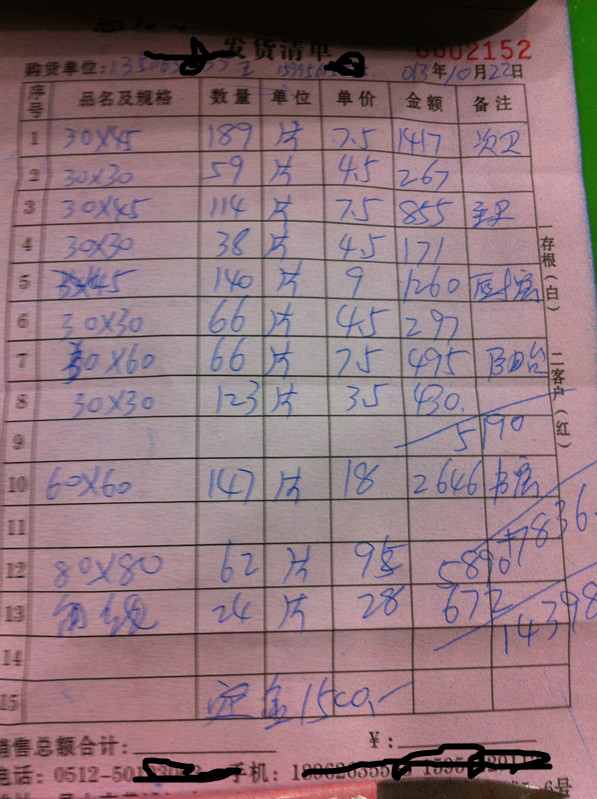 发货清单 0002152
购货单位: 013年10月22日
序号 品名及规格 数量 单位 单价 金额 备注
1 30X45 189 片 7.5 1417 次卫
2 30X30 59 片 4.5 267
3 30X45 114 片 7.5 855 主卫
4 30X30 38 片 4.5 171
5 140 片 9 1260 厨房
6 30X30 66 片 4.5 297
7 30X60 66 片 7.5 495 阳台
8 30X30 123 片 3.5 430.
9 5190
10 60X60 147 片 18 2646 书房
11 7836.
12 80X80 62 片 95 5890
13 24 片 28 672
14 14398
15 定金1500.-
存根(白)
二客户(红)
销售总额合计: ¥:
电话: 0512-50 手机: